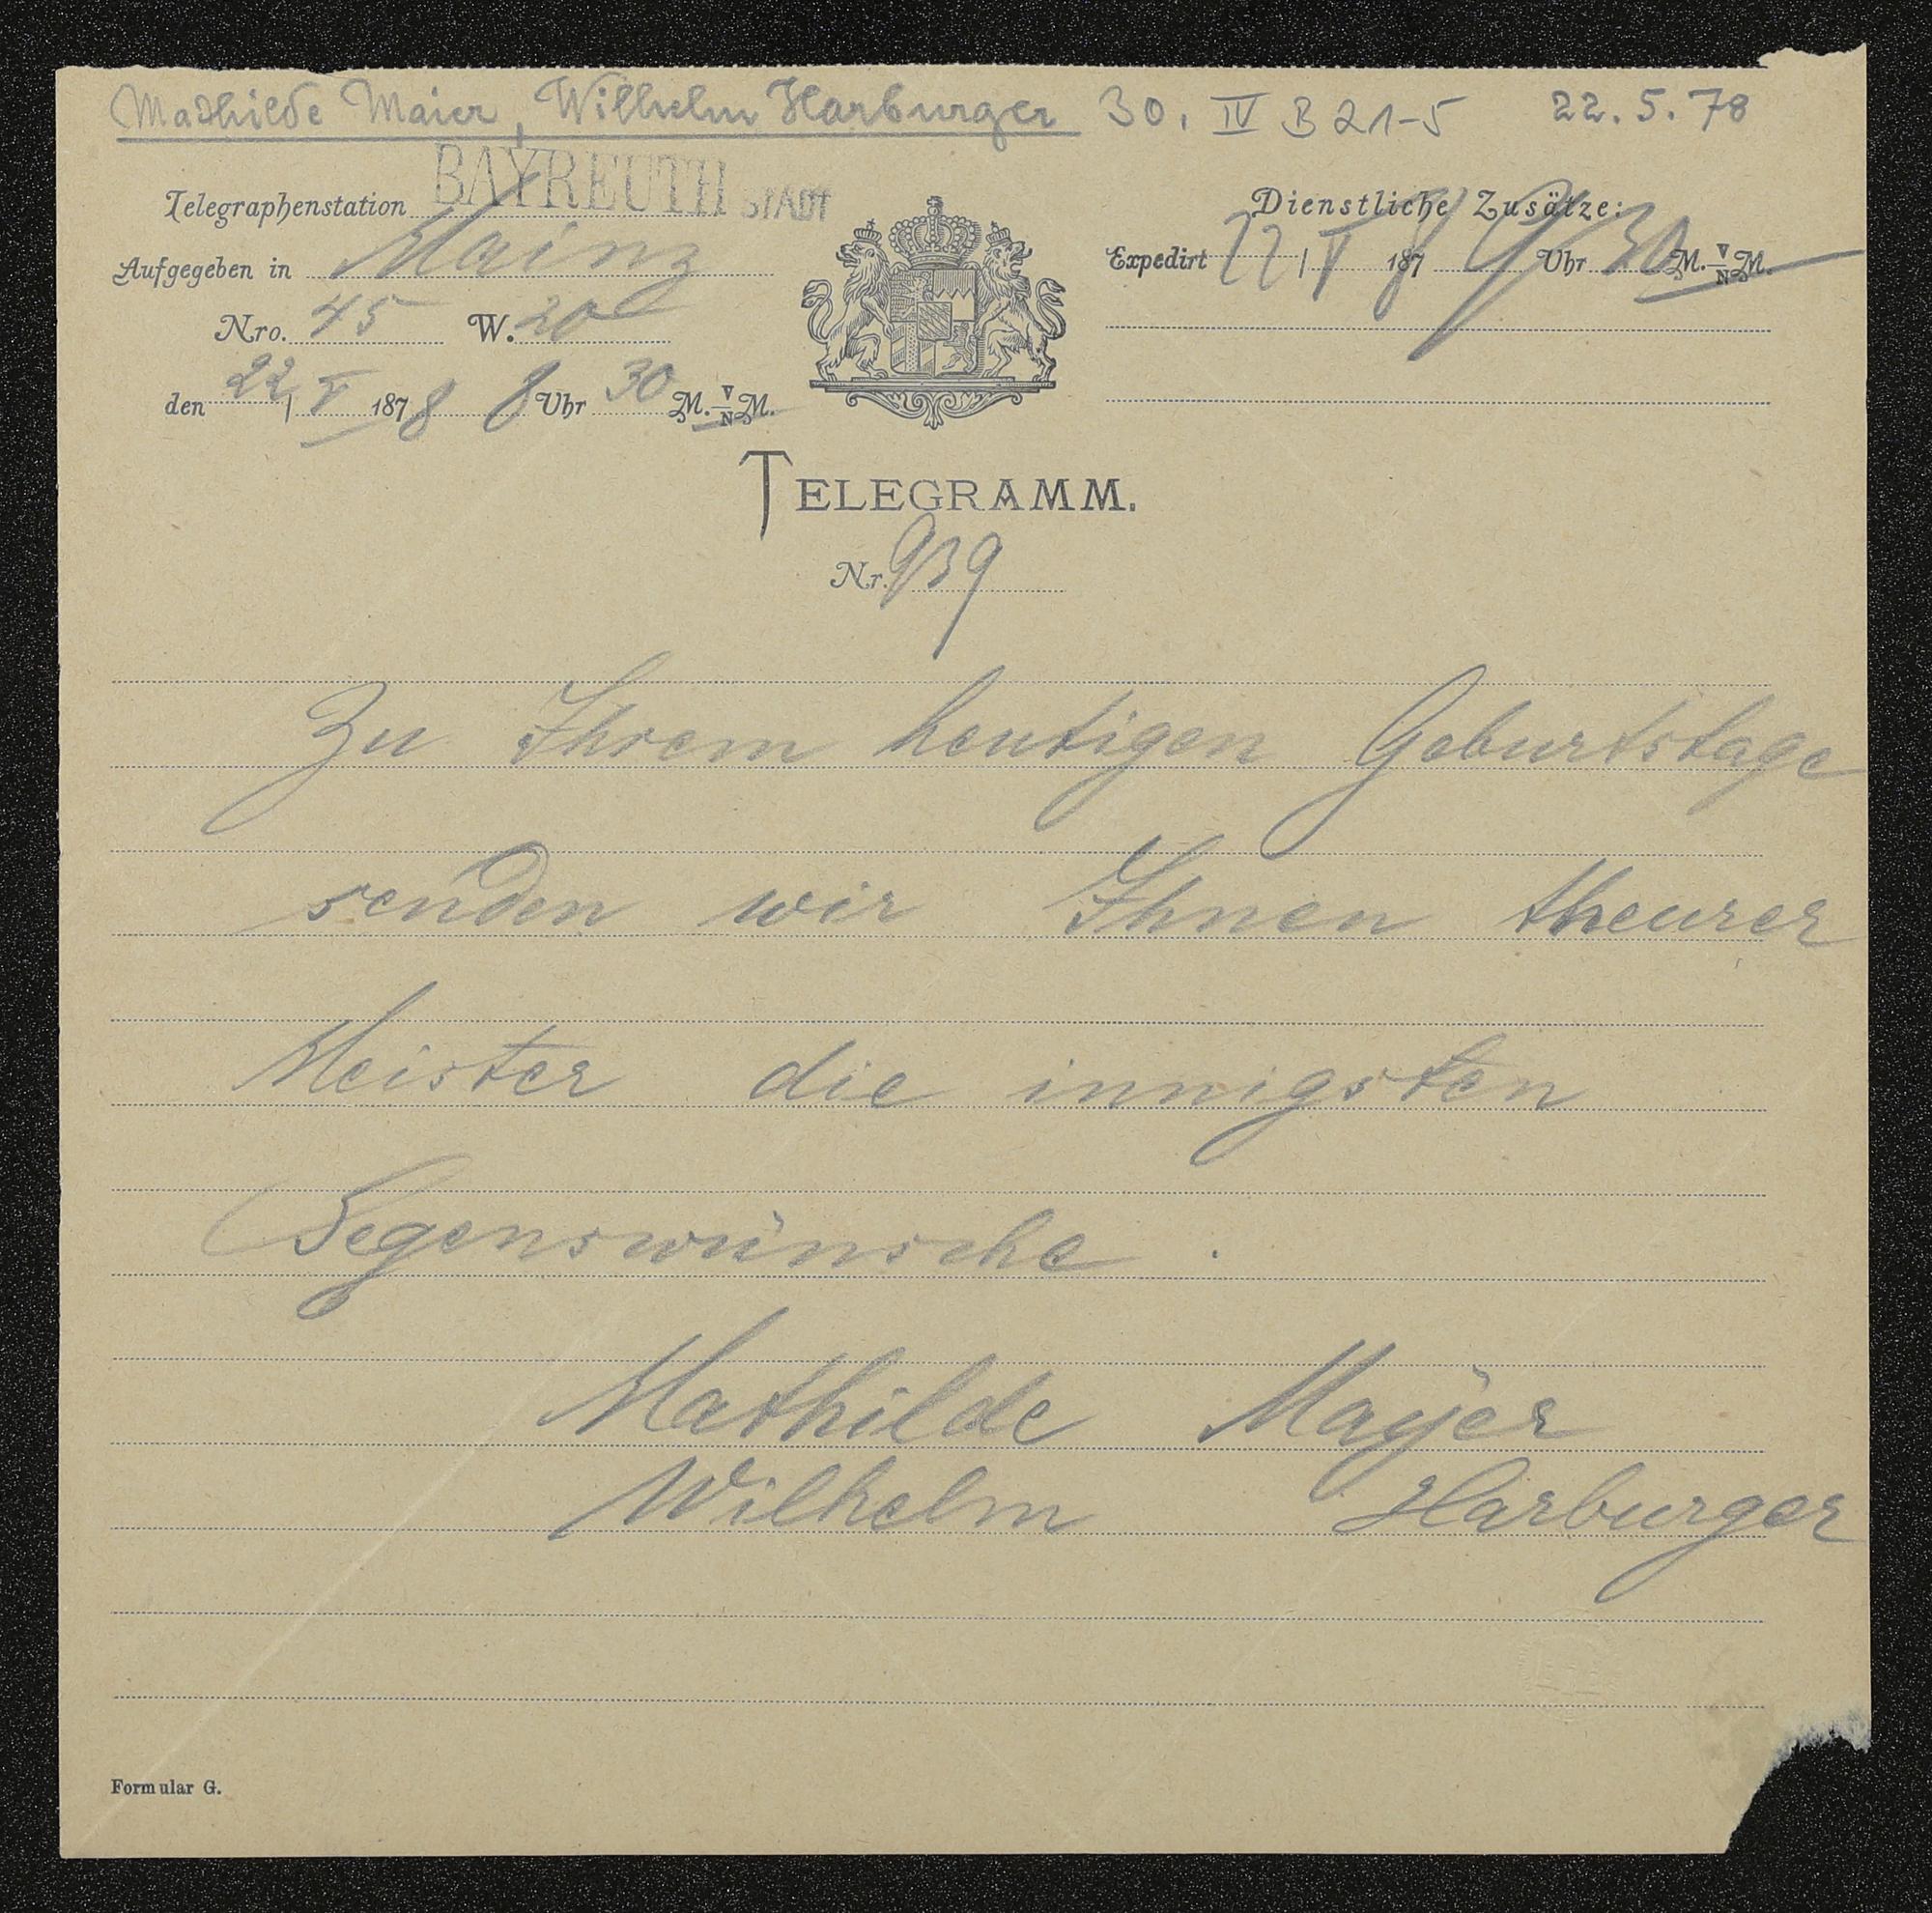 Mathilde Maier, Wilhelm Harburger 30. IV B 21-5 22.5.78
Telegraphenstation BAYREUTH STADT
Aufgegeben in Mainz
Nro. 45 W. 20
den 22/V 1878 8 Uhr 30 M. V/N M.
Dienstliche Zusätze:
Expedirt 22/V 1878 9 Uhr 30 M. V/N M.
TELEGRAMM.
Nr. 939
Zu Ihrem heutigen Geburtstage
senden wir Ihnen theurer
Meister die innigsten
Segenswünsche.
Mathilde Mayer
Wilhelm Harburger
Formular G.